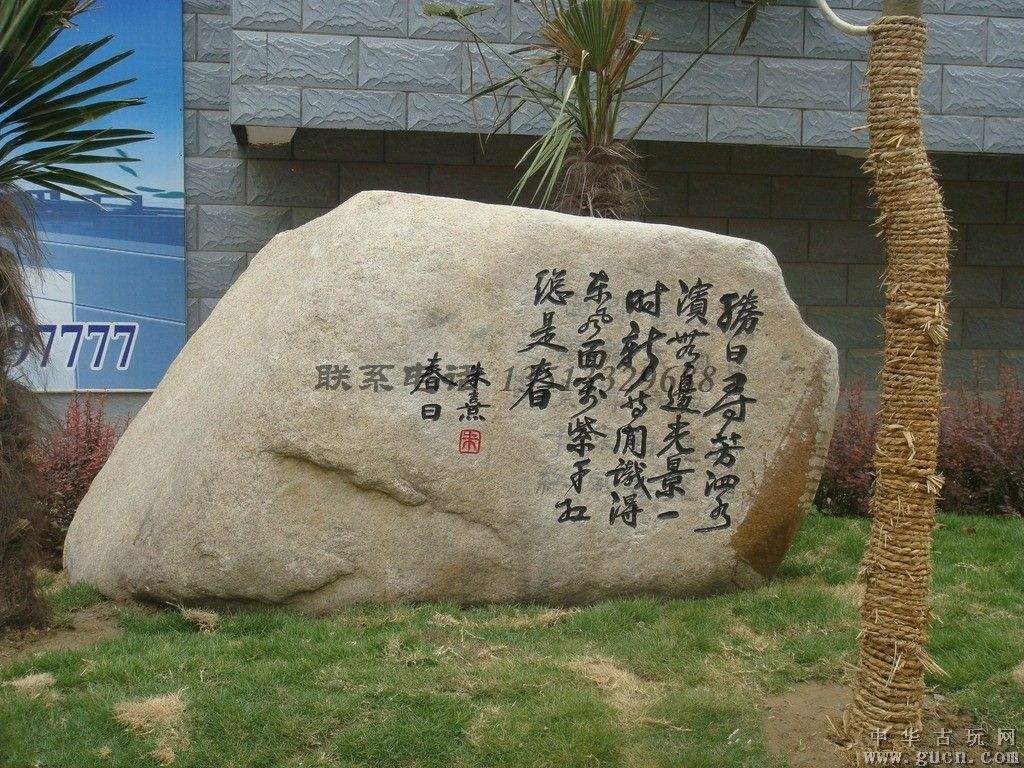 勝日尋芳泗水
濱無邊光景一
時新等閒識得
东风面萬紫千红
總是春
朱熹
春日
朱
联系电话
7777
中华古玩网
www.gucn.com